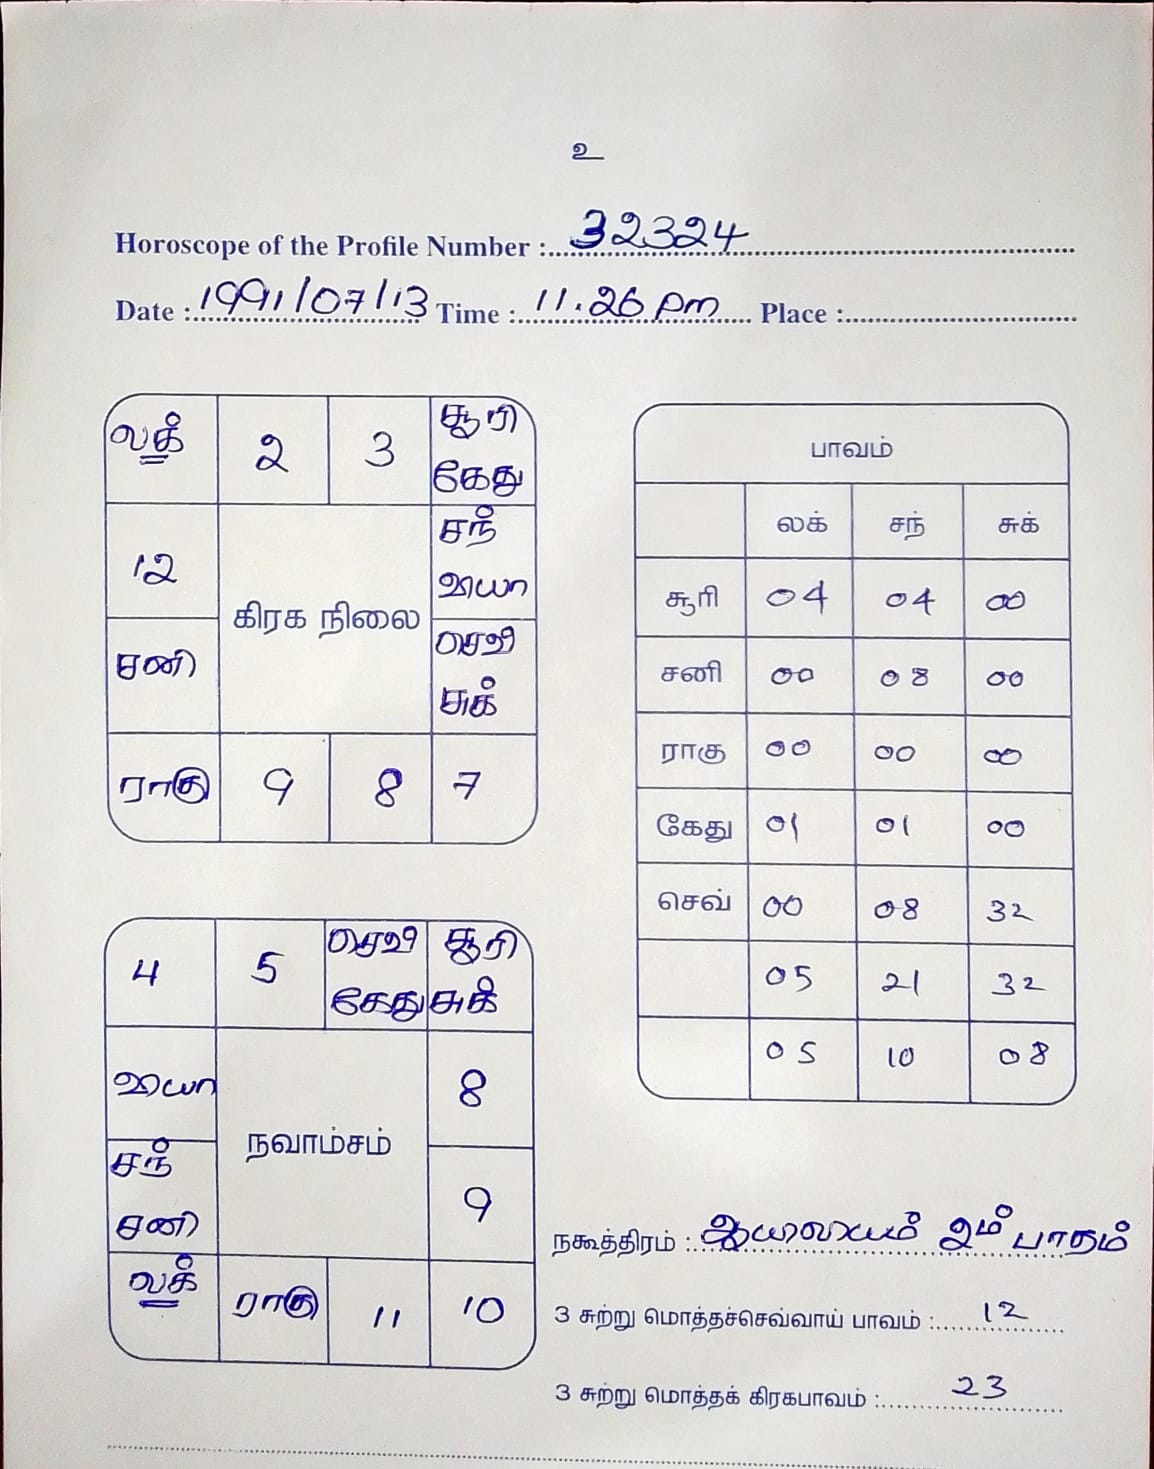 உ
Horoscope of the Profile Number : 32324
Date : 1991/07/13 Time : 11.26 pm Place :
லக் 2 3 சூரி கேது
12 கிரக நிலை சந் வியா
சனி செவ் சுக்
ராகு 9 8 7
பாவம்
லக் சந் சுக்
சூரி 04 04 00
சனி 00 08 00
ராகு 00 00 00
கேது 01 01 00
செவ் 00 08 32
05 21 32
05 10 08
4 5 செவ் கேது சூரி சுக்
வியா நவாம்சம் 8
சந் சனி 9
லக் ராகு 11 10
நகூத்திரம் : ஆயிலியம் 2ம் பாதம்
3 சுற்று மொத்தச்செவ்வாய் பாவம் : 12
3 சுற்று மொத்தக் கிரகபாவம் : 23